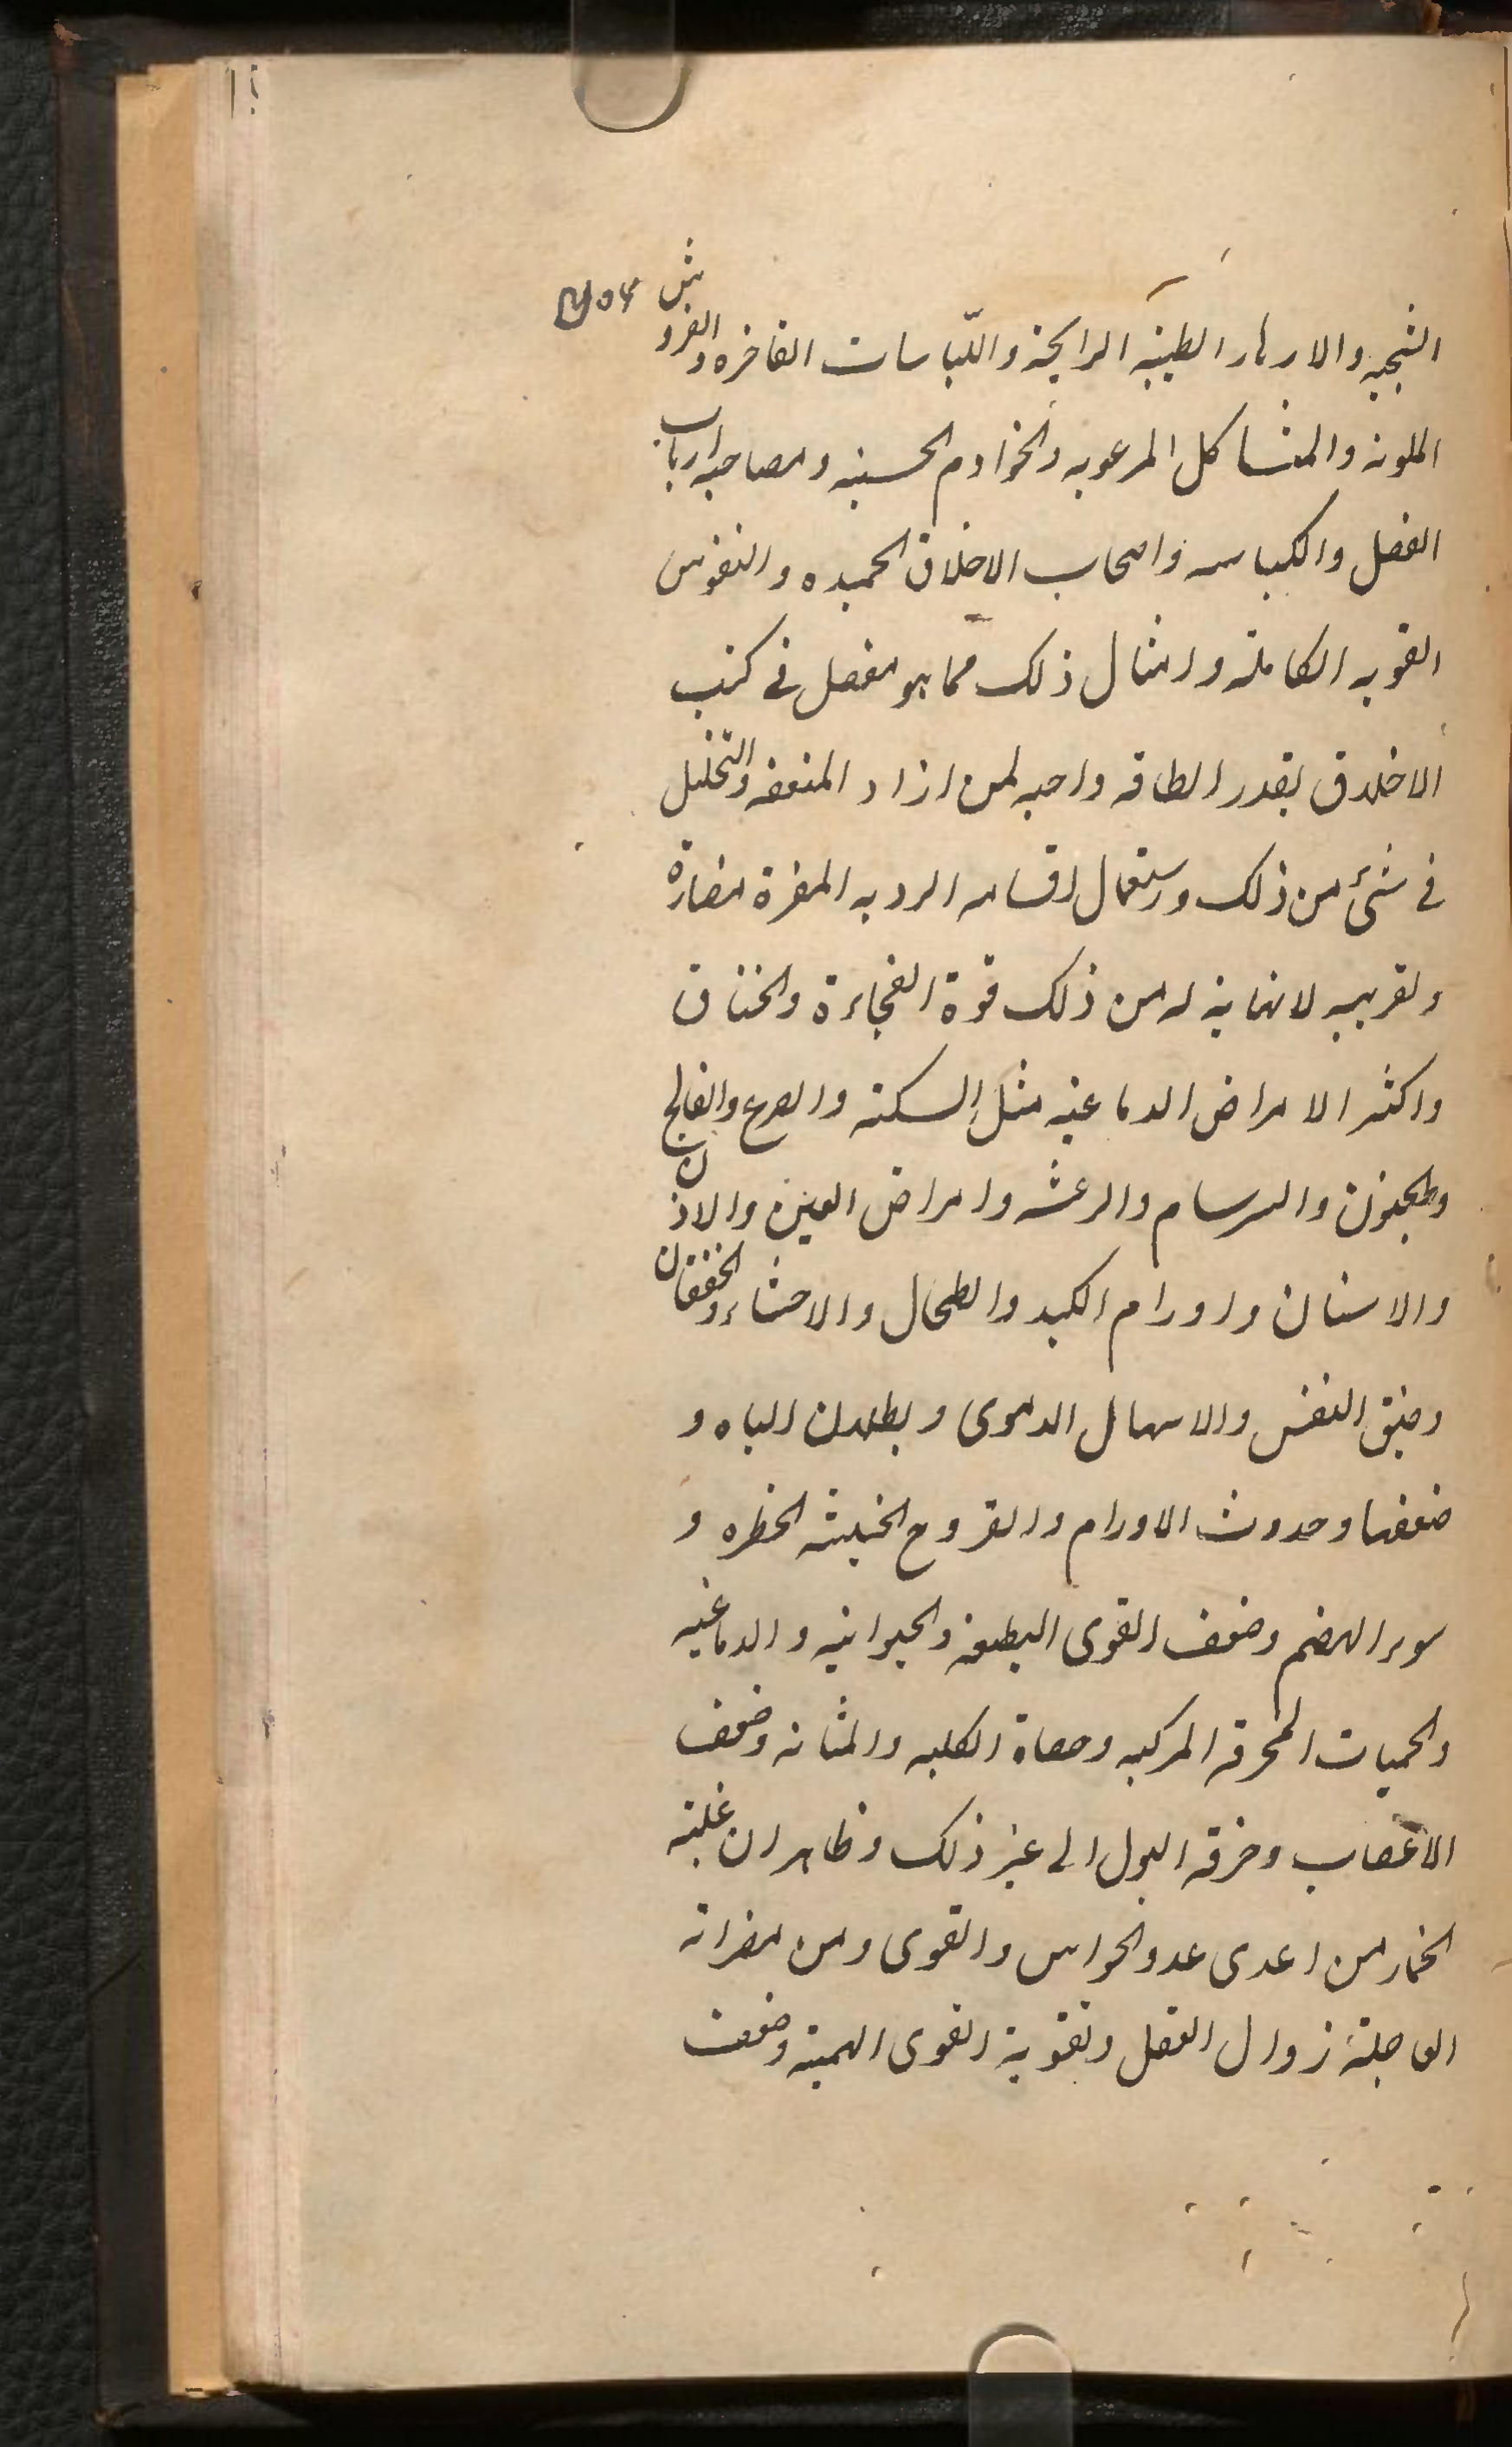 الشجيه والازهار الطيبه الرايحة واللباسات الفاخره والفروش
الملونه والمشاكل المرعوبه والخوادم الحسنه ومصاحبه ارباب
الفضل والكياسه واصحاب الاخلاق الحميده والنفوس
القويه الكامله وامثال ذلك مما هو مفصل فى كتب
الاخلاق بقدر الطاقه واجبه لمن اراد المنفعه والتخليل
فى شئ من ذلك واستعمال اقسامه الرديه المضرة مضارة
وتقريبه لا نهاية له من ذلك قوة الفجاءة والخناق
واكثر الامراض الدماغيه مثل السكته والصرع والفالج
والجنون والسرسام والرعشه وامراض العين والاذن
والاسنان واورام الكبد والطحال والاحشاء والخفقان
وضيق النفس والاسهال الدموى وبطلان الباه و
ضعفها وحدوث الاورام والقروح الخبيثه الخطره و
سوء الهضم وضعف القوى الطبيعة والحيوانيه والدماغيه
والحميات المحرقه المركبه وحصاة الكليه والمثانه وضعف
الاعصاب وحرقه البول الى غير ذلك وظاهر ان غلبة
الخمار من اعدى عدو الحواس والقوى ومن مضراته
العاجلة زوال العقل وتقوية القوى البهميه وضعف